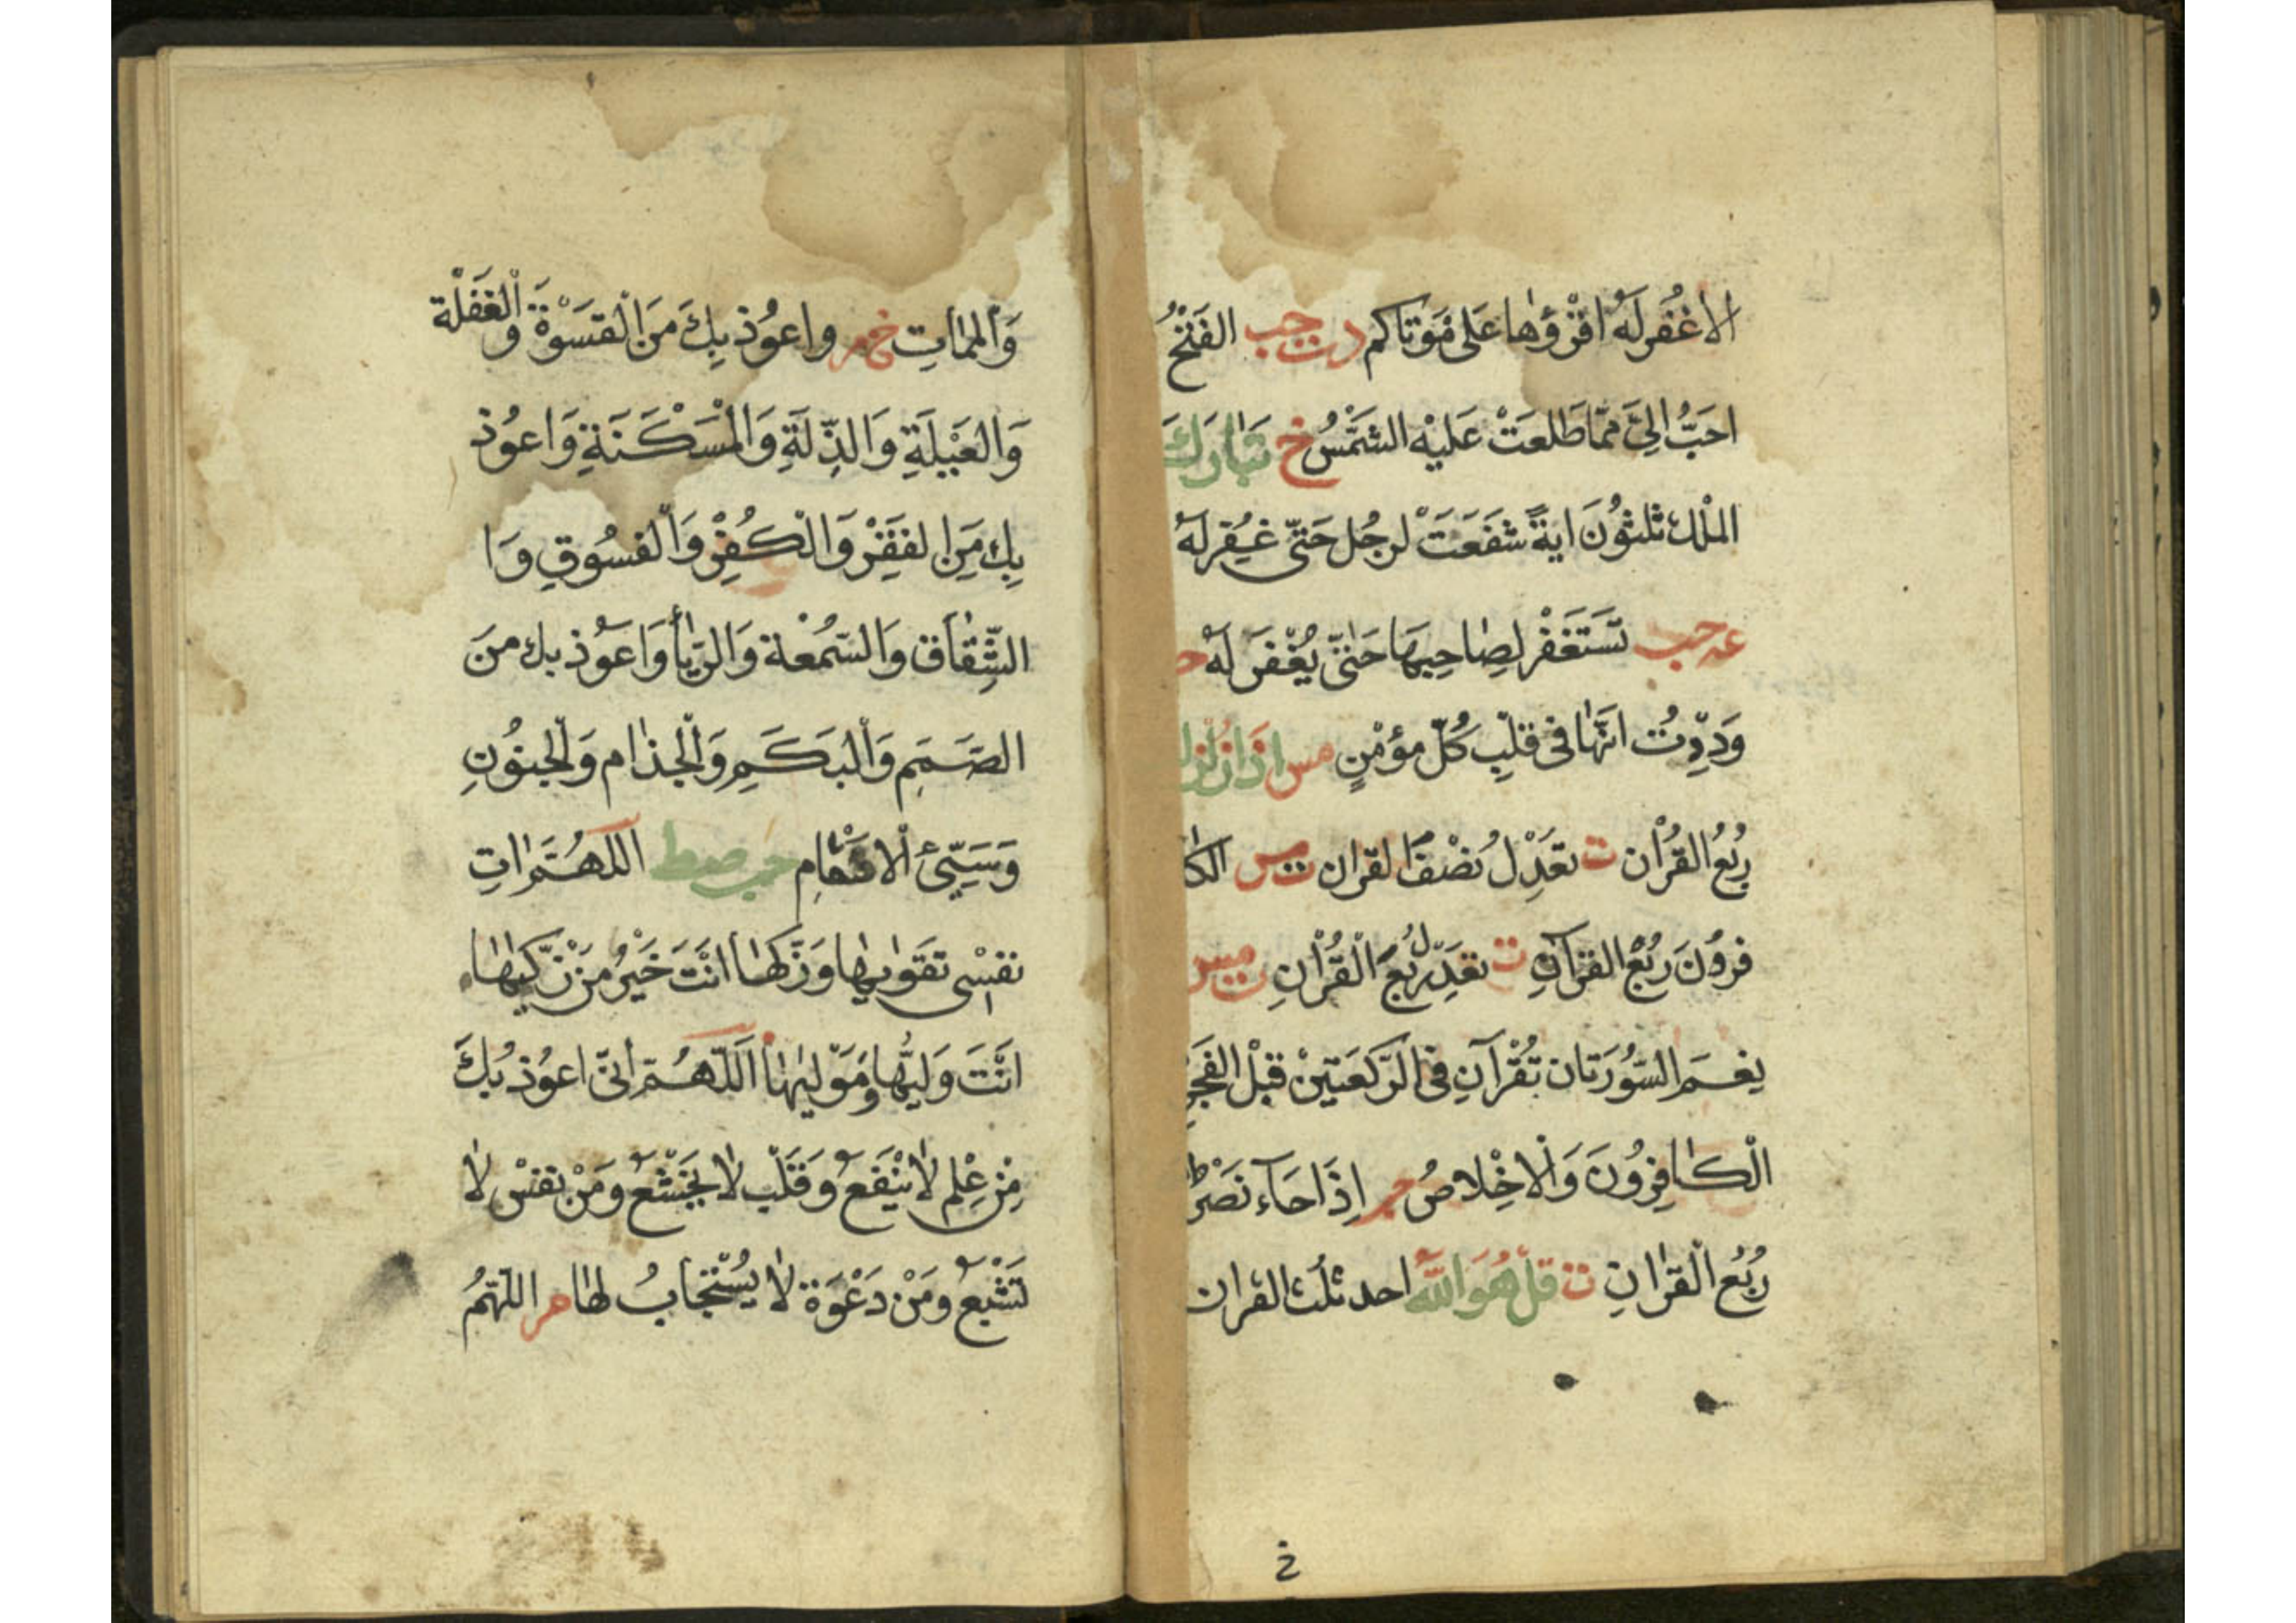 الا غُفر له اقرؤها على موتاكم د ت حب الفتح
احبّ اليّ ممّا طلعت عليه الشمس خ تبارك
الملك ثلثون اية شفعت لرجل حتّى غفر له
عه حب تستغفر لصاحبها حتّى يغفر له
وددت انّها فى قلب كلّ مؤمن مس اذا زلزلت
ربع القرأن ت تعدل نصف القران ت مس الكا
فرون ربع القرآن ت تعدل ربع القرأن ت مس
نعم السّورتان تقرآن فى الرّكعتين قبل الفجر
الكافرون والاخلاص حب اذا جاء نصر
ربع القرأن ت قل هو الله احد ثلث القران
والممات خ م واعوذ بك من القسوة والغفلة
والعيلة والذّلّة والمسكنة واعوذ
بك من الفقر والكفر والفسوق وا
الشّقاق والسّمعة والريأ واعوذ بك من
الصّمم والبكم والجذام والجنون
وسيّئ الاسقام حب صط اللهم ات
نفسى تقويها وزكّها انت خير من زكّيها
انت وليّها وموليها اللّهم انّى اعوذ بك
من علم لا ينفع وقلب لا يخشع ومن نفس لا
تشبع ومن دعوة لا يستجاب لها م اللّهمّ